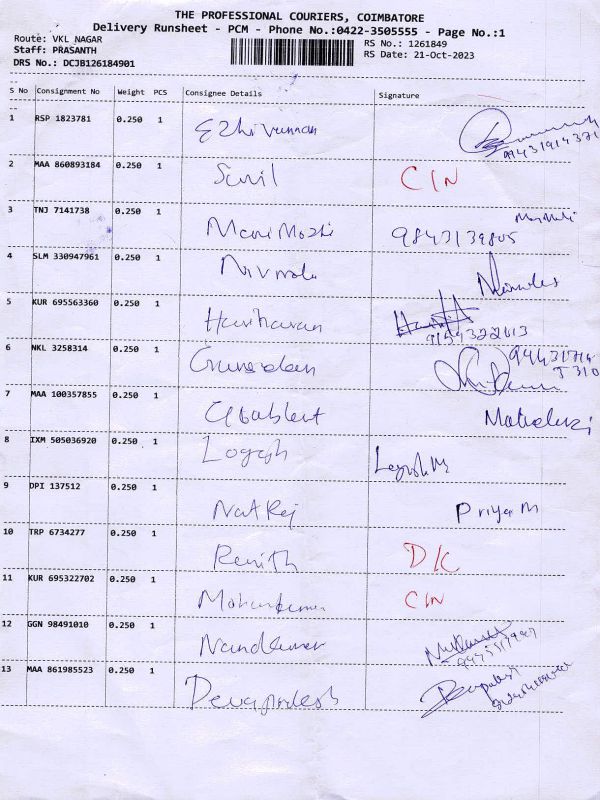 THE PROFESSIONAL COURIERS, COIMBATORE
Delivery Runsheet - PCM - Phone No.:0422-3505555 - Page No.:1
Route: VKL NAGAR RS No.: 1261849
Staff: PRASANTH RS Date: 21-Oct-2023
DRS No.: DCJB126184901
S No Consignment No Weight PCS Consignee Details Signature
1 RSP 1823781 0.250 1 Ezhivannan
2 MAA 860893184 0.250 1 Sunil CIN
3 TNJ 7141738 0.250 1 Manimozhi 9843139805
4 SLM 330947961 0.250 1 Nirmala
5 KUR 695563360 0.250 1 Hariharan 9159322613
6 NKL 3258314 0.250 1 Gunasdan
7 MAA 100357855 0.250 1
8 IXM 505036920 0.250 1 Logesh
9 DPI 137512 0.250 1 NatRaj Priya M
10 TRP 6734277 0.250 1 Renith D/C
11 KUR 695322702 0.250 1 Mohankumar CIN
12 GGN 98491010 0.250 1 Nandkumar
13 MAA 861985523 0.250 1 Devapradesh